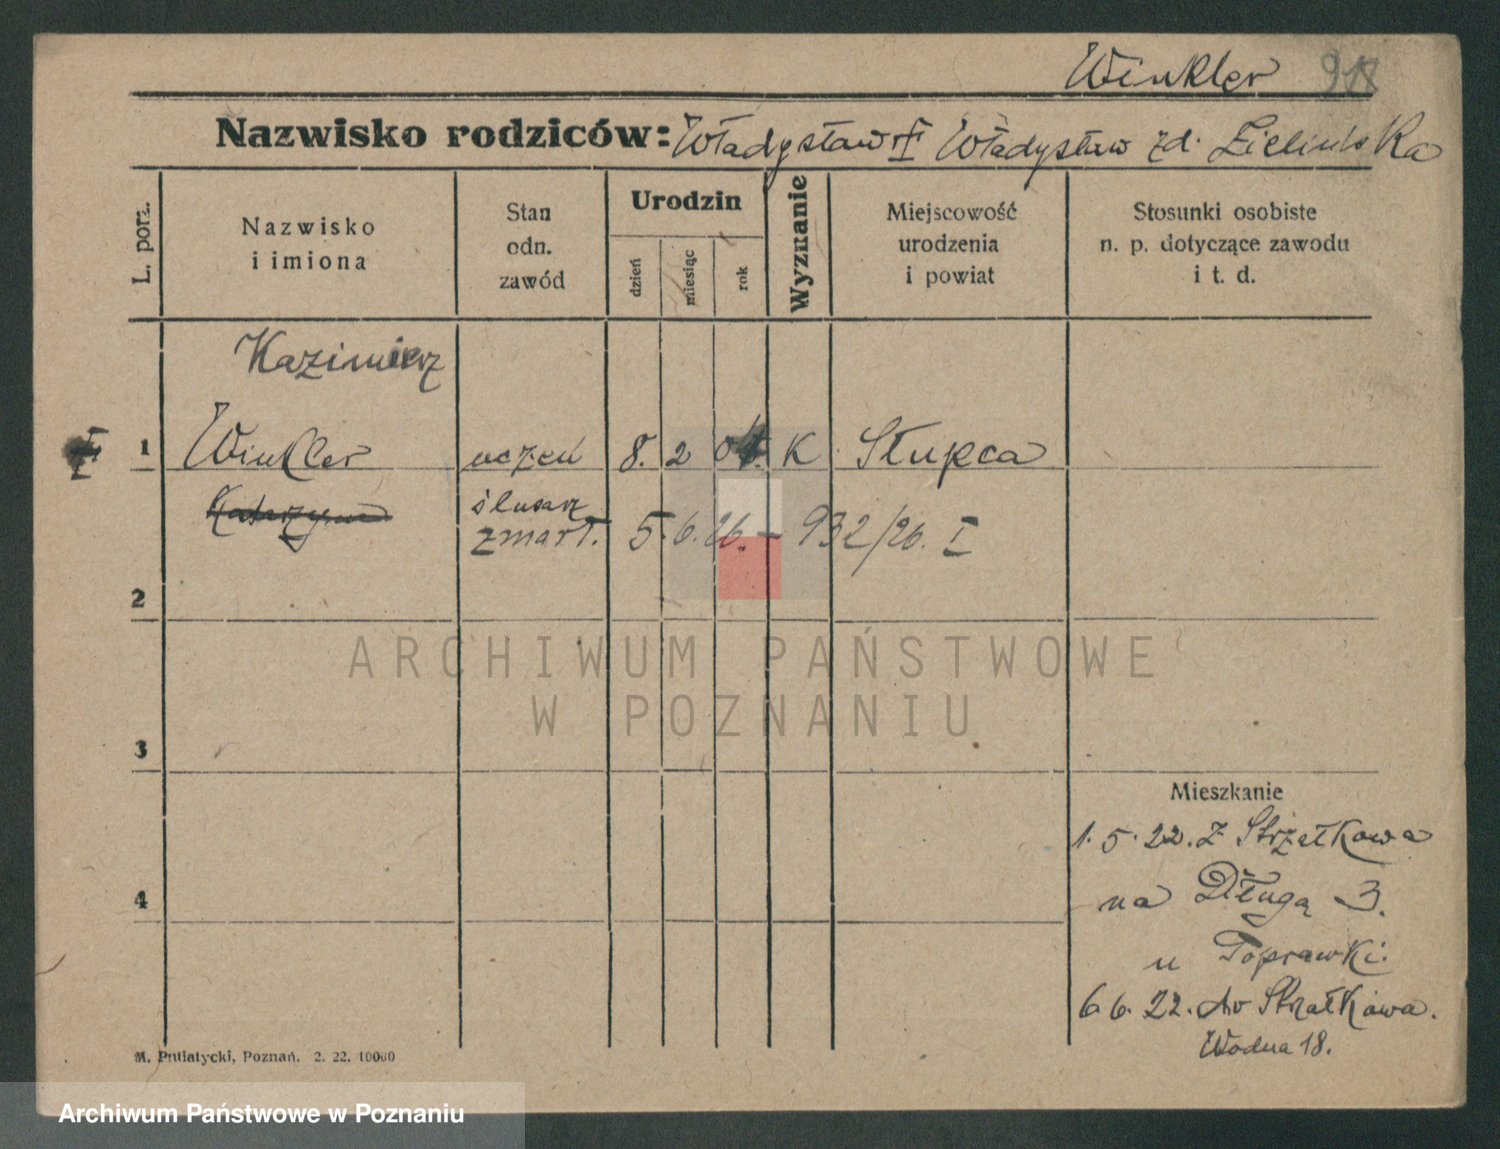 Winkler 918
Nazwisko rodziców: Władysław Władysław zd. Zielińska
L. porz.
Nazwisko
i imiona
Stan
odn.
zawód
Urodzin
dzień
miesiąc
rok
Wyznanie
Miejscowość
urodzenia
i powiat
Stosunki osobiste
n. p. dotyczące zawodu
i t. d.
Kazimierz
1 Winkler uczeń 8. 2 04. K Słupca
ślusarz
zmarł. 5. 6. 26. – 932/26. I
2
3
4
Mieszkanie
1. 5. 22. z Strzałkowa
na Długą 3.
u Poprawki.
6. 6. 22. do Strzałkowa.
Wodna 18.
M. Putiatycki, Poznań. 2. 22. 10000
ARCHIWUM PAŃSTWOWE
W POZNANIU
Archiwum Państwowe w Poznaniu